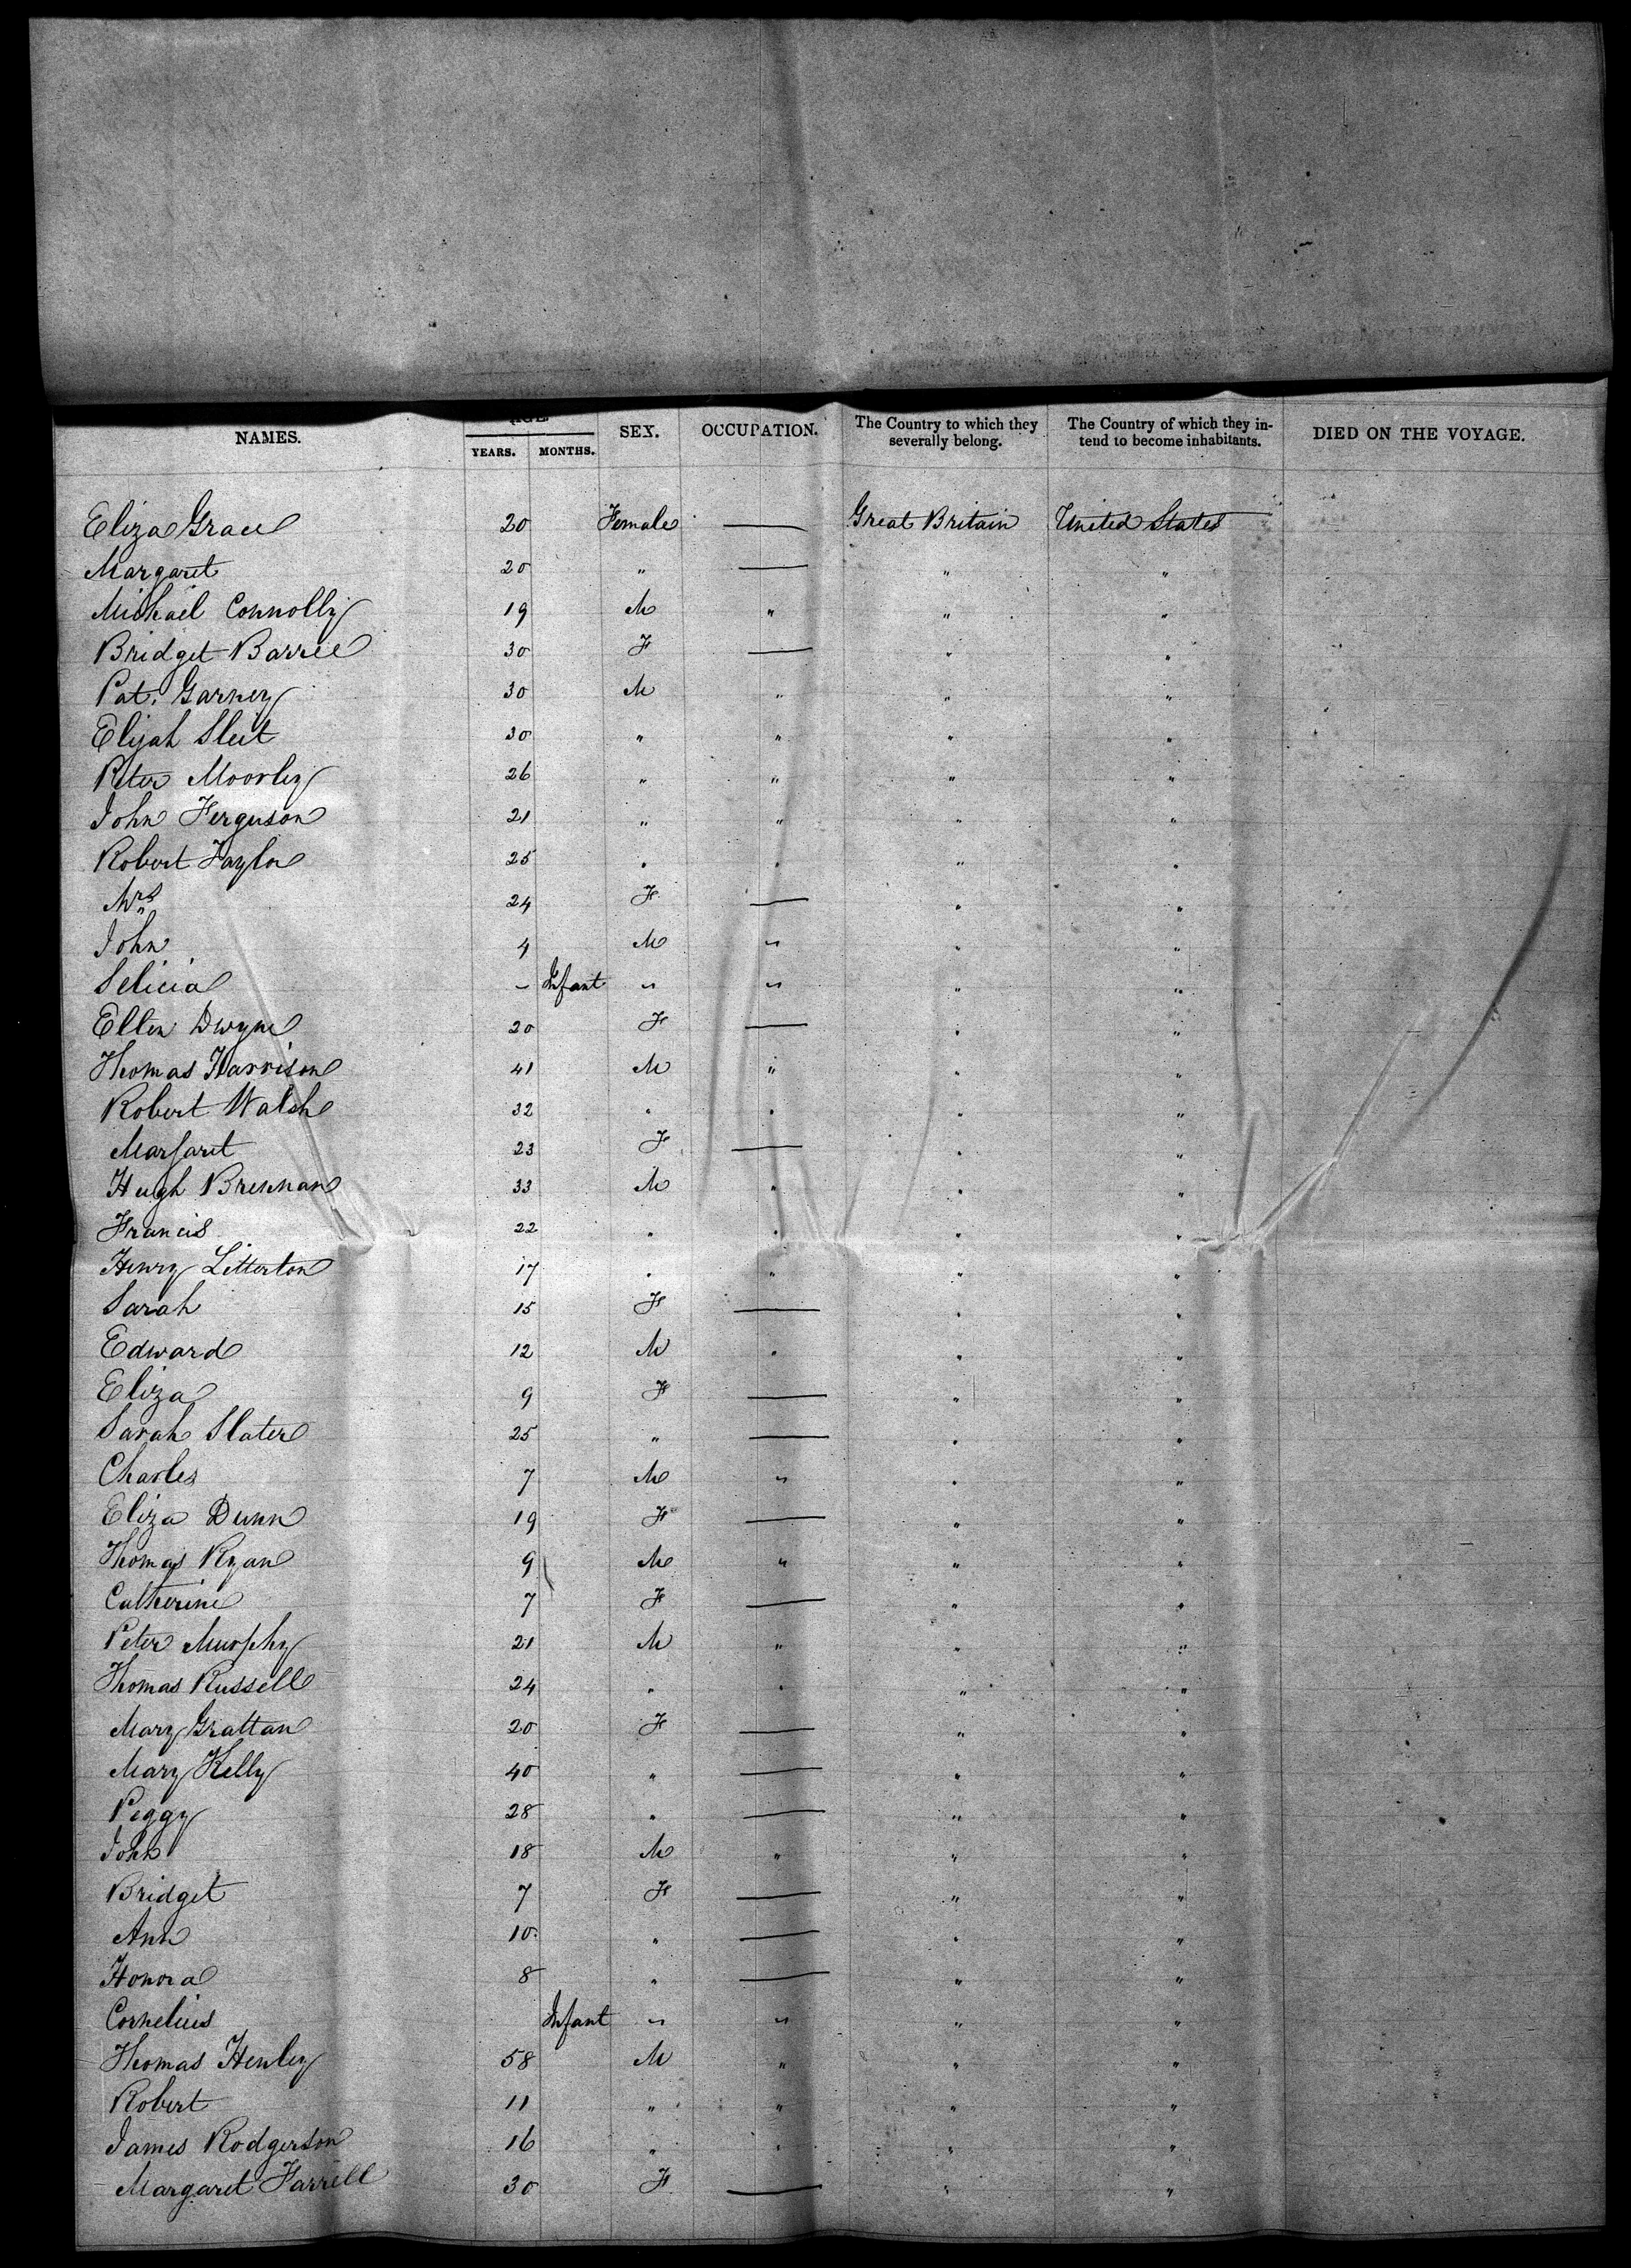 NAMES. AGE YEARS. MONTHS. SEX. OCCUPATION. The Country to which they severally belong. The Country of which they intend to become inhabitants. DIED ON THE VOYAGE.
Eliza Grace 20 Female — Great Britain United States
Margaret 20 " — " "
Michael Connolly 19 M " " "
Bridget Barree 30 F — " "
Pat. Garney 30 M " " "
Elijah Sleet 30 " " " "
Peter Moorley 26 " " " "
John Ferguson 21 " " " "
Robert Taylor 25 " " " "
Mrs " 24 F — " "
John 4 M " " "
Selicia — Infant " " " "
Ellen Dwyne 20 F — " "
Thomas Harrison 41 M " " "
Robert Walsh 32 " " " "
Margaret 23 F — " "
Hugh Brennan 33 M " " "
Francis 22 " " " "
Henry Litterton 17 " " " "
Sarah 15 F — " "
Edward 12 M " " "
Eliza 9 F — " "
Sarah Slater 25 " — " "
Charles 7 M " " "
Eliza Dunn 19 F — " "
Thomas Ryan 9 M " " "
Catherine 7 F — " "
Peter Murphy 21 M " " "
Thomas Russell 24 " " " "
Mary Grattan 20 F — " "
Mary Kelly 40 " — " "
Peggy 28 " — " "
John 18 M " " "
Bridget 7 F — " "
Ann 10 " — " "
Honora 8 " — " "
Cornelius Infant " " " "
Thomas Henley 58 M " " "
Robert 11 " " " "
James Rodgerson 16 " " " "
Margaret Farrell 30 F — " "